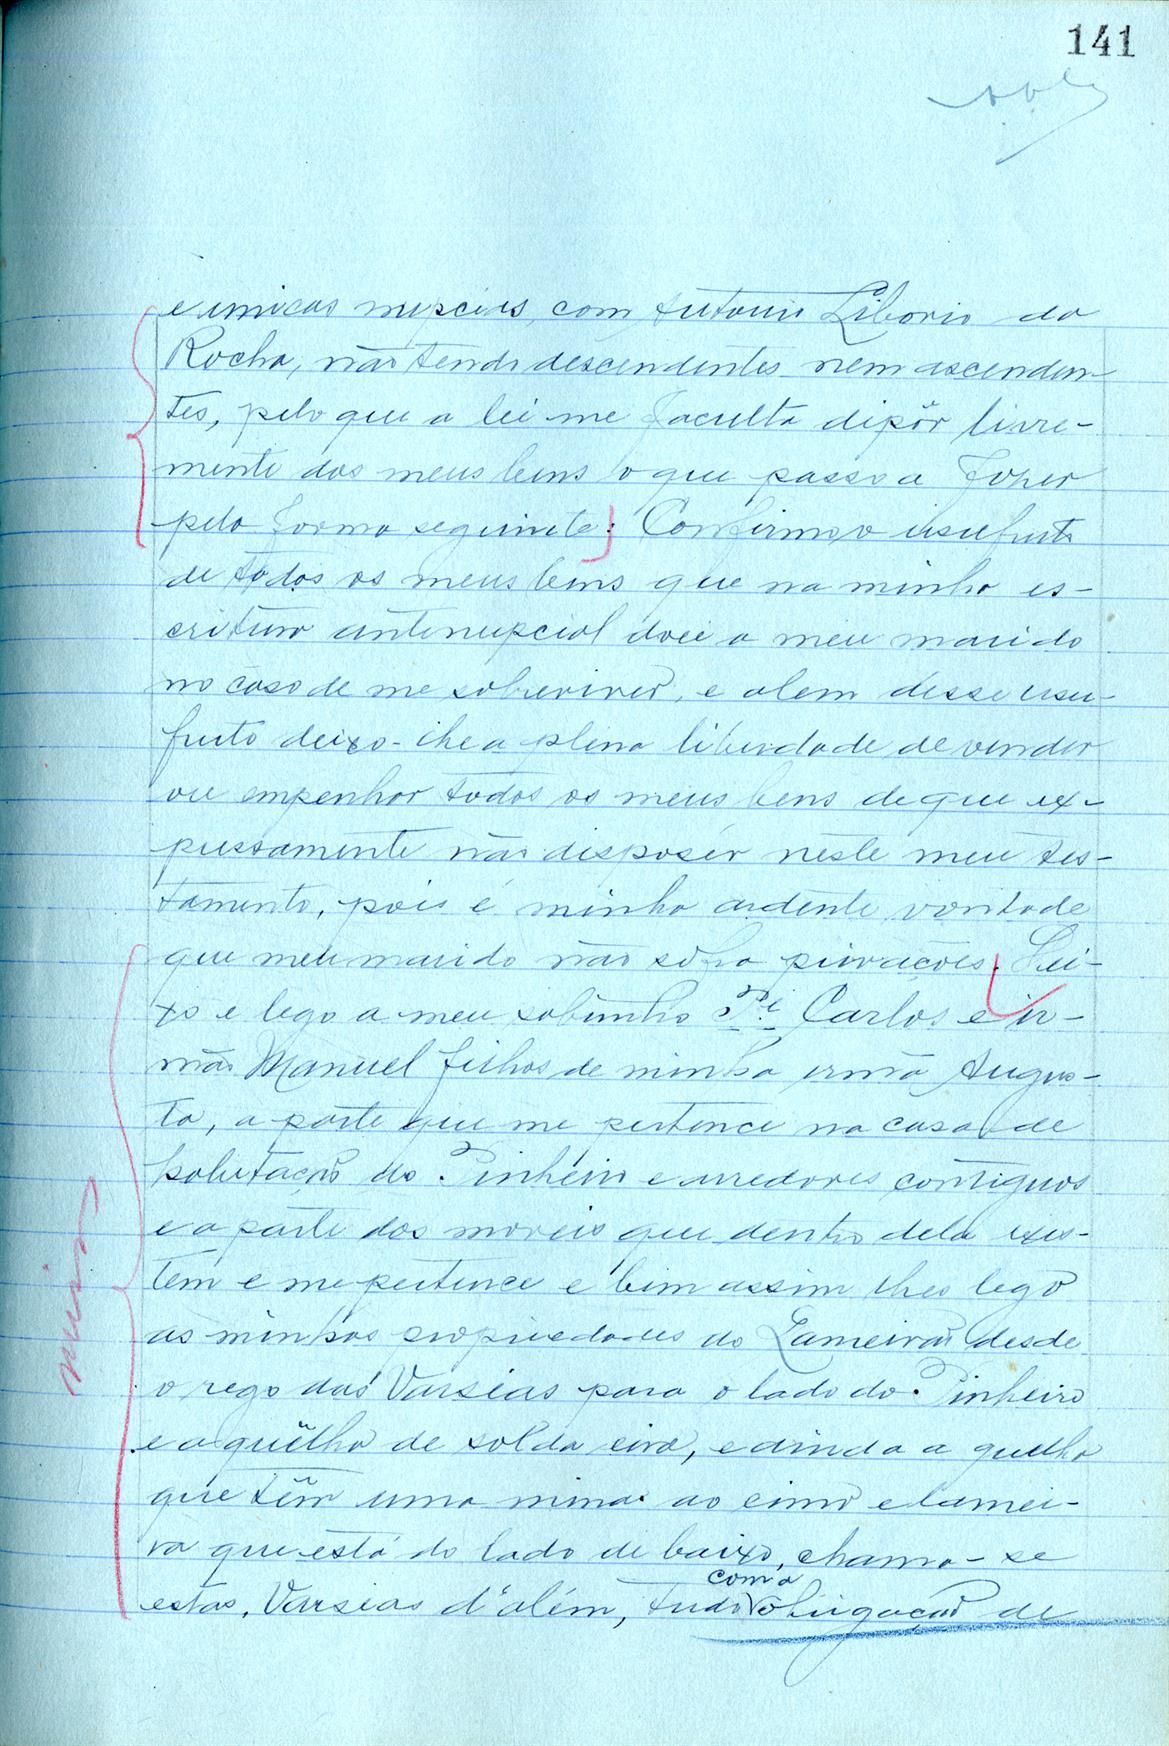 141
e unicas nupcias, com Antonio Liborio da
Rocha, não tendo descendentes nem ascenden-
tes, pelo que a lei me faculta dipôr livre-
mente dos meus bens o que passo a fazer
pela forma seguinte: Confirmo o usufruto
de todos os meus bens que na minha es-
critura antenupcial doei a meu marido
no caso de me sobreviver, e alem desse usu-
fruto deixo-lhe a plena liberdade de vender
ou empenhar todos os meus bens de que ex-
pressamente não disposér neste meu tes-
tamento, pois é minha ardente vontade
que meu marido não sofra privações. Dei-
xo e lego a meu sobrinho Pe Carlos e ir-
mão Manuel filhos de minha irmã Augus-
ta, a parte que me pertence na casa de
habitação do Pinheiro e arredores contiguos
e a parte dos moveis que dentro dela exis-
tem e me pertence e bem assim lhes lego
as minhas propriedades do Lameirão desde
o rego das Varsias para o lado do Pinheiro
e a quëlha de sol da eira, e ainda a quelha
que têm uma mina ao cimo e lamei-
ra que está do lado de baixo, chama-se
estas, Varsias d'além, tudo com a obrigação de